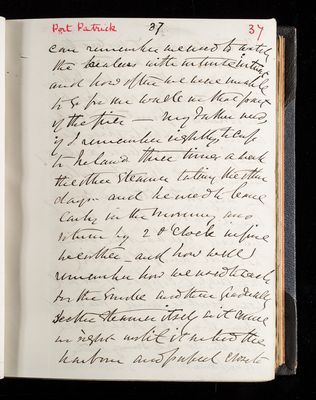 Port Patrick 37 37
can remember we used to watch
the Sealers with infinite interest
and how often we were unable
to go for me walk on that part
of the pier — my Father used
if I remember rightly to cross
to Ireland three times a week
the other Steamer taking the other
days and he used to leave
early in the Morning and
return by 2 O'Clock in fine
weather — and how well I
remember how we used to watch
for the Smoke and then gradually
see the Steamer itself as it came
in sight until it entered the
harbour and puffed close to